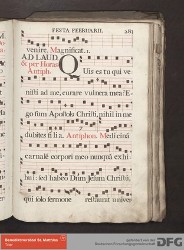 FESTA FEBRUARII. 281
venire. Magnificat. 1.
AD LAUD
& per Horas
Antiph. Quis es tu qui ve
nisti ad me, curare vulnera mea? E
go sum Apostolus Christi, nihil in me
dubites filia. Antiphon. Medicinā
carnalē corpori meo nunquā exhi
bui: sed habeo Dnm Jesum Christū,
qui solo sermone restaurat univer